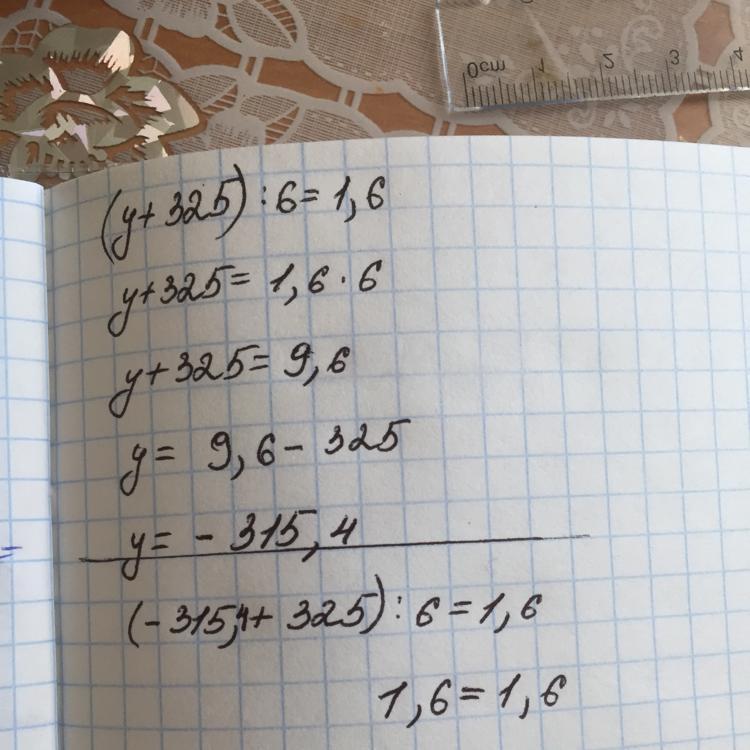 0cm 1 2 3 4
(y+325):6=1,6
y+325= 1,6·6
y+325= 9,6
y= 9,6- 325
y= - 315,4
(-315,4+ 325):6=1,6
1,6=1,6